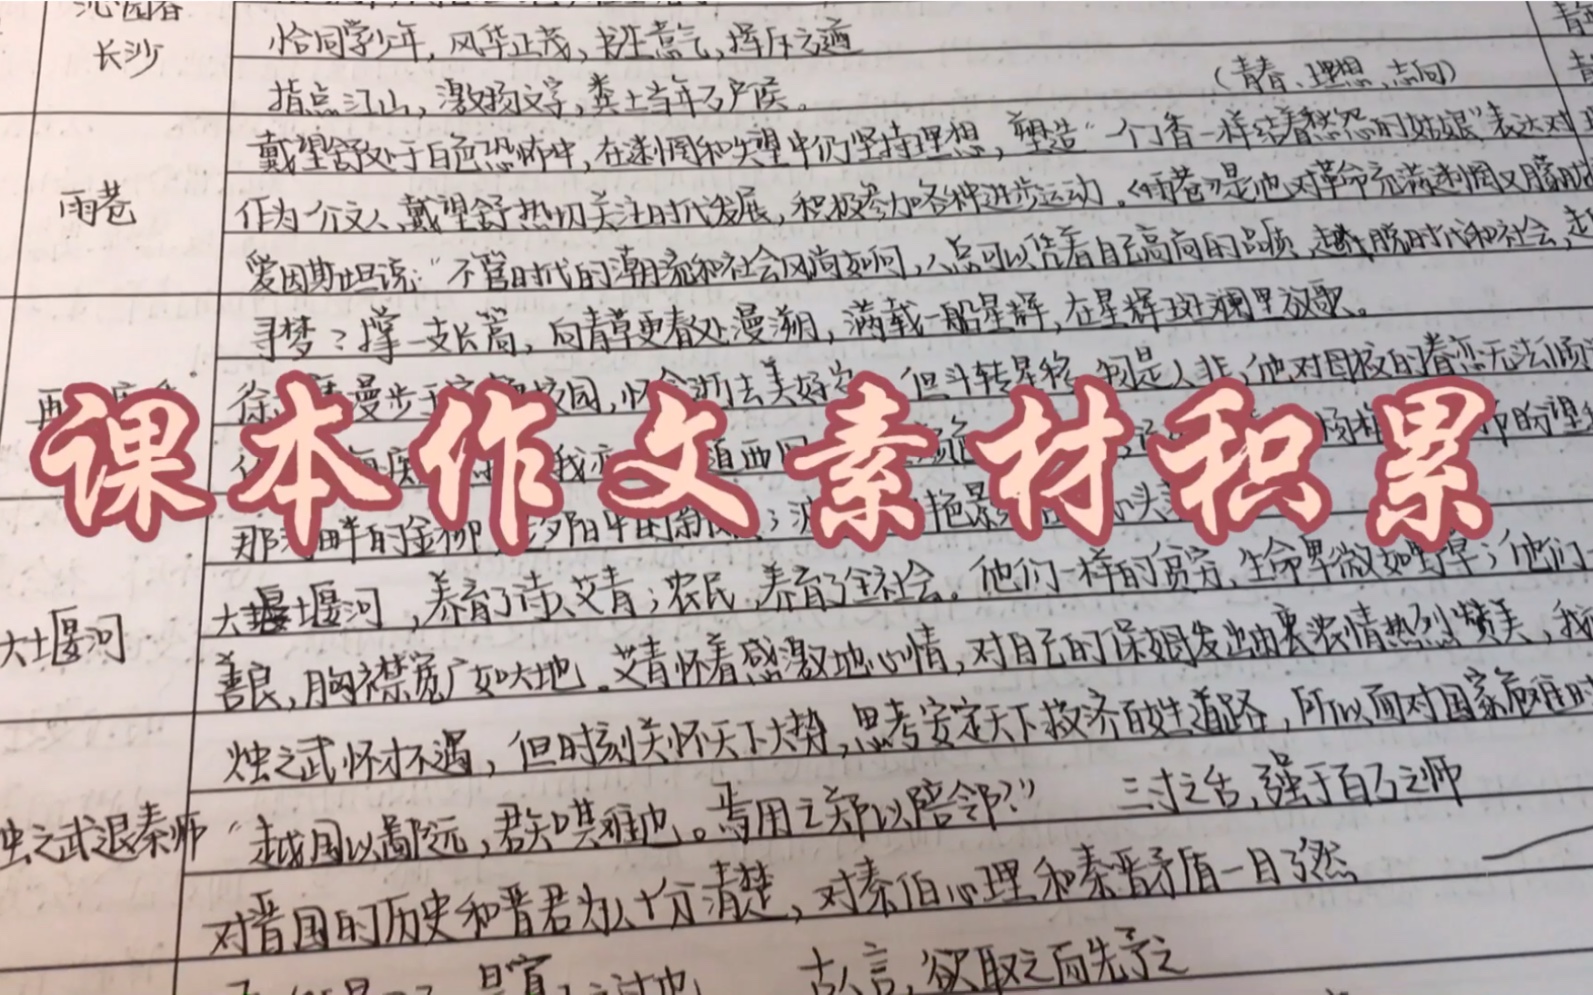 沁园春
长沙
恰同学少年，风华正茂，书生意气，挥斥方遒
指点江山，激扬文字，粪土当年万户侯。
（青春、理想、志向）
雨巷
戴望舒处于白色恐怖中，在迷惘和失望中仍坚持理想，塑造“一个丁香一样结着愁怨的姑娘”表达对
作为一介文人，戴望舒热切关注时代发展，积极参加各种进步运动。《雨巷》是他对革命充满迷惘又朦胧
爱因斯坦说：“不管时代的潮流和社会风尚如何，人总可以凭着自己高尚的品质，超脱时代和社会，走
寻梦？撑一支长篙，向青草更青处漫溯，满载一船星辉，在星辉斑斓里放歌。
再
徐 漫步于 校园，怀念逝去美好 但斗转星移，物是人非，他对母校的眷恋无法
课本作文素材积累
那河畔的金柳 夕阳中的新娘；波 艳影 头
大堰河
大堰河，养育了诗人艾青；农民，养育了全社会。他们一样的贫穷，生命卑微如野草；他们
善良，胸襟宽广如大地。艾青怀着感激地心情，对自己的保姆发出由衷浓情热烈赞美，我
烛之武退秦师
烛之武怀才不遇，但时刻关怀天下大势，思考安定天下救济百姓道路，所以面对国家危难时
“越国以鄙远，君知其难也。焉用亡郑以陪邻？” 三寸之舌，强于百万之师
对晋国的历史和晋君为人十分清楚，对秦伯心理和秦晋矛盾一目了然
是寡人之过也 古人言，欲取之而先予之